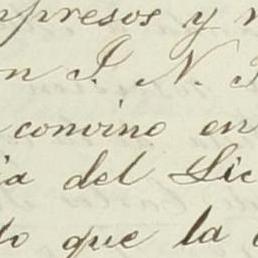 mpresos y
n I. N.
convino en
ia del Lic
to que la